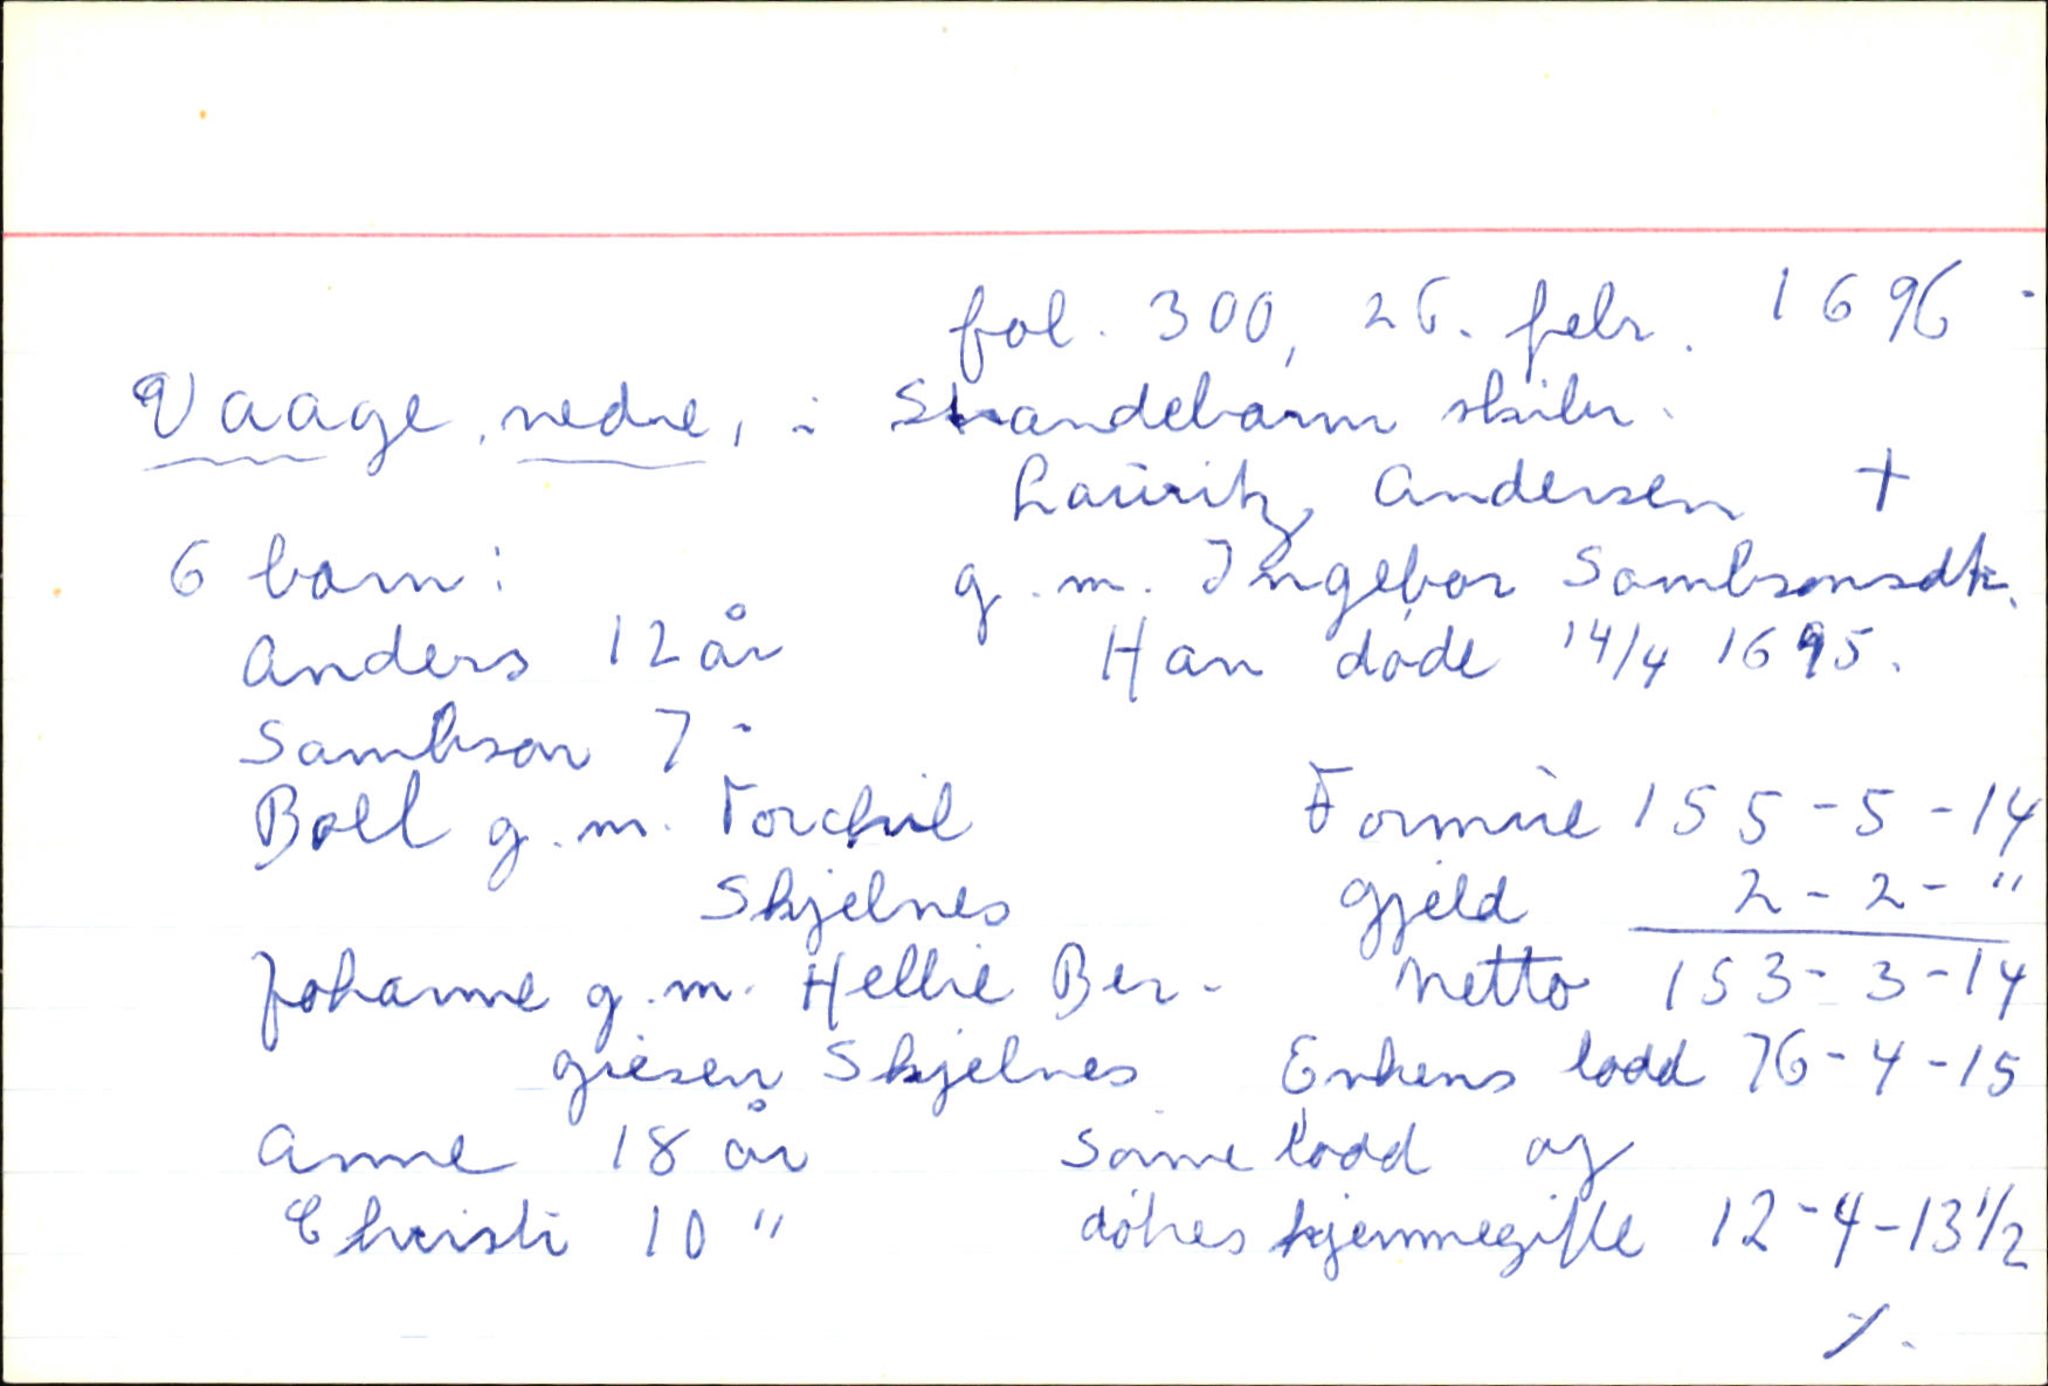 fol. 300, 26. febr. 1696.
Vaage, nedre, i Strandebarm skibr.
Lauritz Andersen +
6 barn: g.m. Ingebor Sambsonsdtr.
Anders 12 år Han døde 14/4 1695.
Sambson 7 "
Boel g.m. Torchil Formue 155-5-14
Skjelnes Gjeld 2-2-"
Johanne g.m. Hellie Ber- Netto 153-3-14
giesen Skjelnes Enkens lodd 76-4-15
Anne 18 år Sønnelodd og
Christi 10 " døtres hjemmegifte 12-4-13 1/2
./.